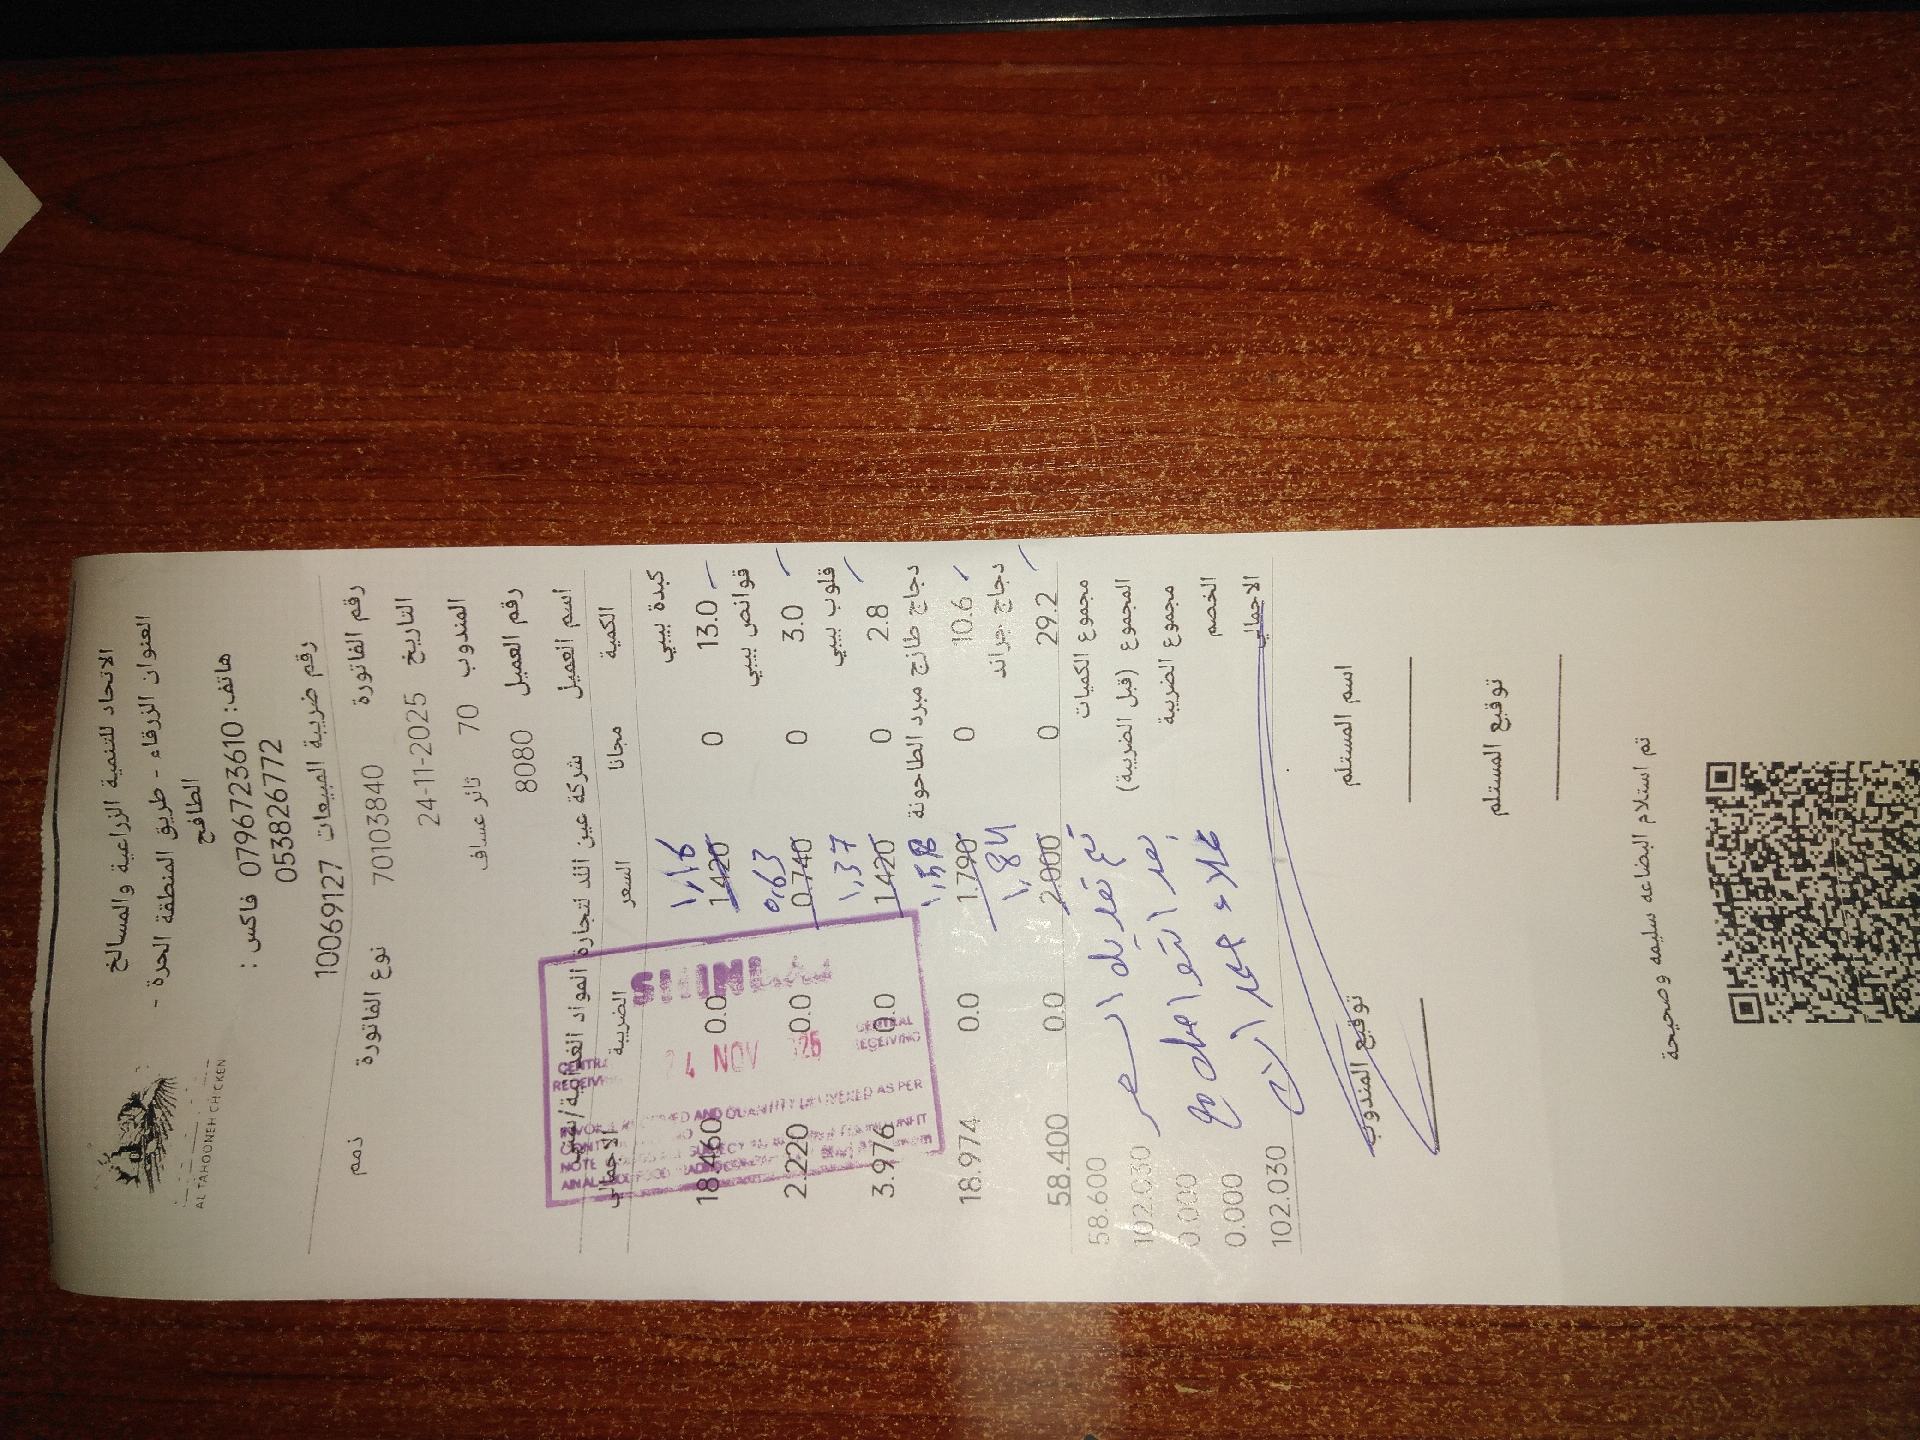 AL TAHOONEH CHICKEN
الاتحاد للتنمية الزراعية والمسالخ
العنوان الزرقاء - طريق المنطقة الحرة -
الطافح
هاتف: 0796723610 فاكس :
053826772
رقم ضريبة المبيعات 10069127
رقم الفاتورة 70103840 نوع الفاتورة ذمم
التاريخ 24-11-2025
المندوب 70 ثائر عساف
رقم العميل 8080
اسم العميل شركة عين اللد لتجارة المواد الغذائية/
الكمية مجانا السعر الضريبة الاجمالي
كبدة بيبي
13.0 0 1.420 0.0 18.460
قوانص بيبي
0.63
3.0 0 0.740 0.0 2.220
قلوب بيبي
1,37
2.8 0 1.420 0.0 3.976
دجاج طازج مبرد الطاحونة
10.6 0 1.790 0.0 18.974
دجاج جراند
1,84
29.2 0 2.000 0.0 58.400
مجموع الكميات 58.600
المجموع (قبل الضريبة) 102.030
مجموع الضريبة 0.000
الخصم 0.000
الاجمالي 102.030
تم تعديل السعر
بعد التواصل مع
علاء
CENTRAL
RECEIVING
24 NOV 2025
CENTRAL
RECEIVING
AND QUANTITY DELIVERED AS PER
NOTE
اسم المستلم
توقيع المندوب
توقيع المستلم
تم استلام البضاعه سليمه وصحيحة